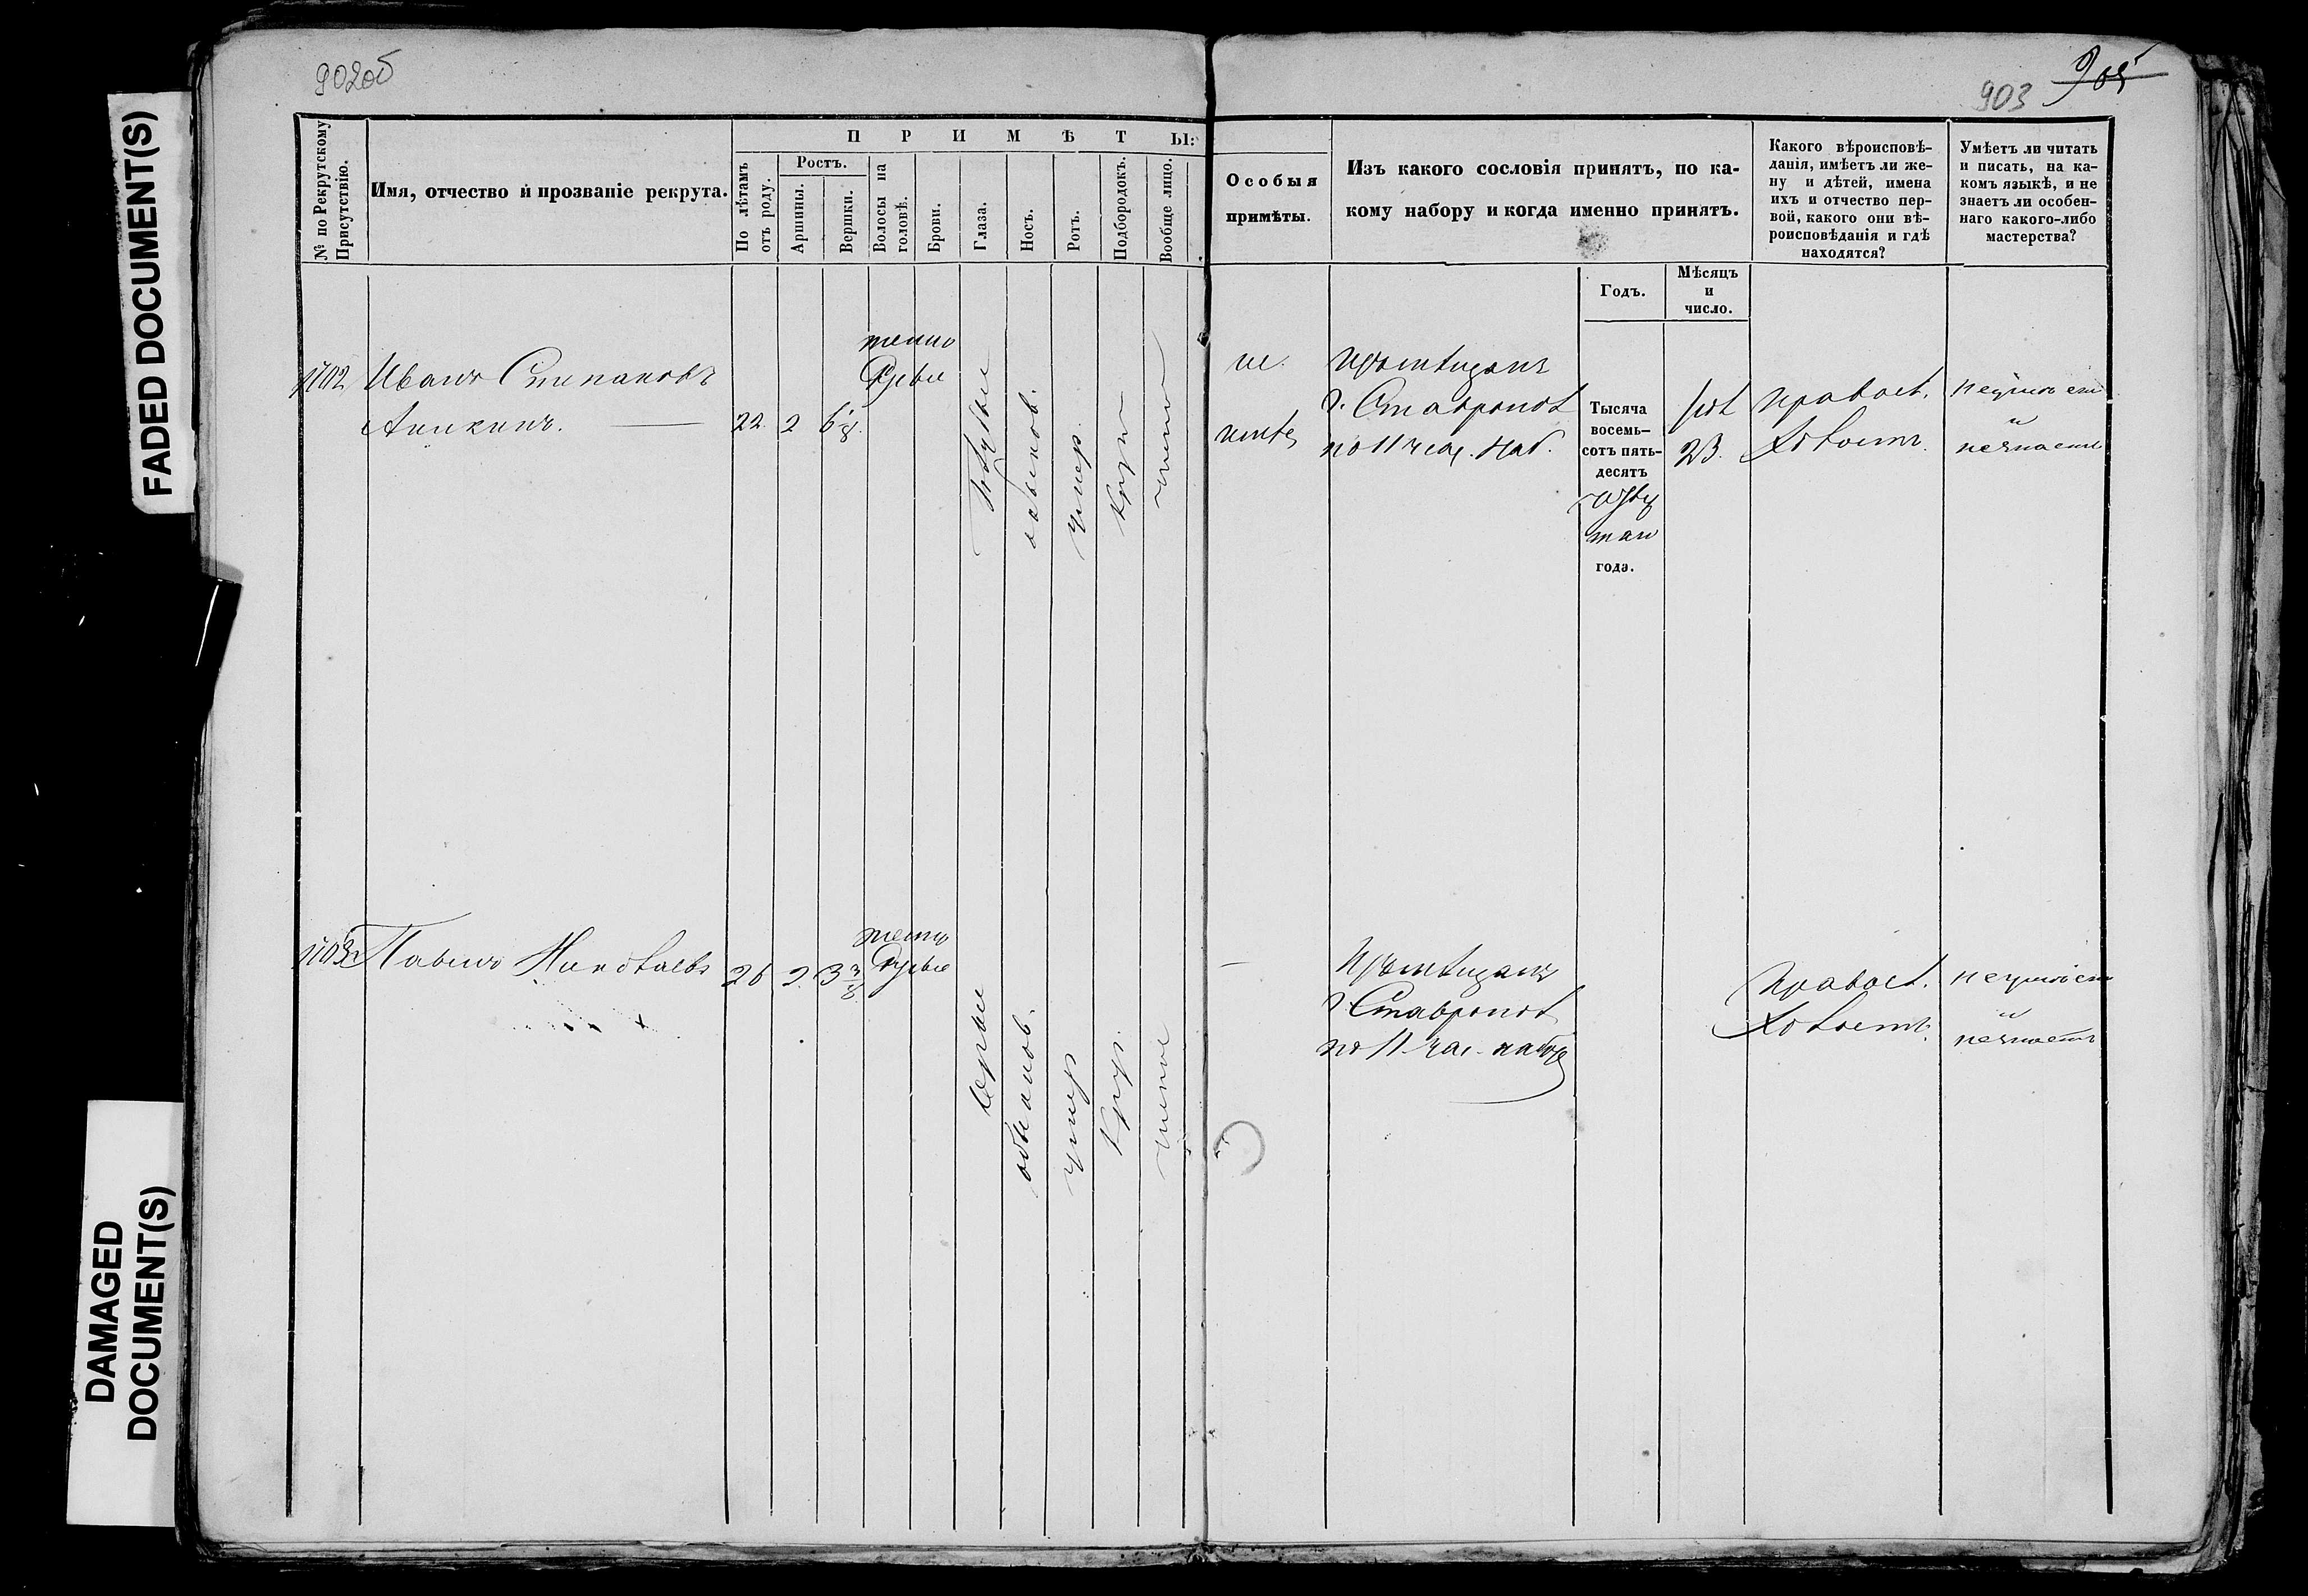 902об
903
905
FADED DOCUMENT(S)
DAMAGED
DOCUMENT(S)
№ по Рекрутскому
Присутствію.
Имя, отчество и прозваніе рекрута.
ПРИМѢТЫ:
По лѣтамъ
отъ роду.
Ростъ.
Аршины.
Вершки.
Волосы на
головѣ.
Брови.
Глаза.
Носъ.
Ротъ.
Подбородокъ.
Вообще лицо.
Особыя
примѣты.
Изъ какого сословія принятъ, по ка-
кому набору и когда именно принятъ.
Годъ.
Мѣсяцъ
и
число.
Какого вѣроисповѣ-
данія, имѣетъ ли же-
ну и дѣтей, имена
ихъ и отчество пер-
вой, какого они вѣ-
роисповѣданія и гдѣ
находятся?
Умѣетъ ли читать
и писать, на ка-
комъ языкѣ, и не
знаетъ ли особен-
наго какого-либо
мастерства?
1702
Иванъ Степановъ
Аникинъ.
22
2
6 1/8
темно
Русые
Голубые
обыкнов.
умер.
кругл
чисто
не
имѣе
г. Ставропол
по 11 час. наб.
Тысяча
восемь-
сотъ пять-
десятъ
года.
23
правосл.
Холостъ.
неумѣетъ
и
незнаетъ
1703
Павелъ Николаевъ
26
2
3 3/8
темно
Русые
Серые
обыкнов.
умер
кругл.
чистое
г. Ставропол
по 11 час. набору
правосл.
Холостъ.
неумѣетъ
и
незнаетъ